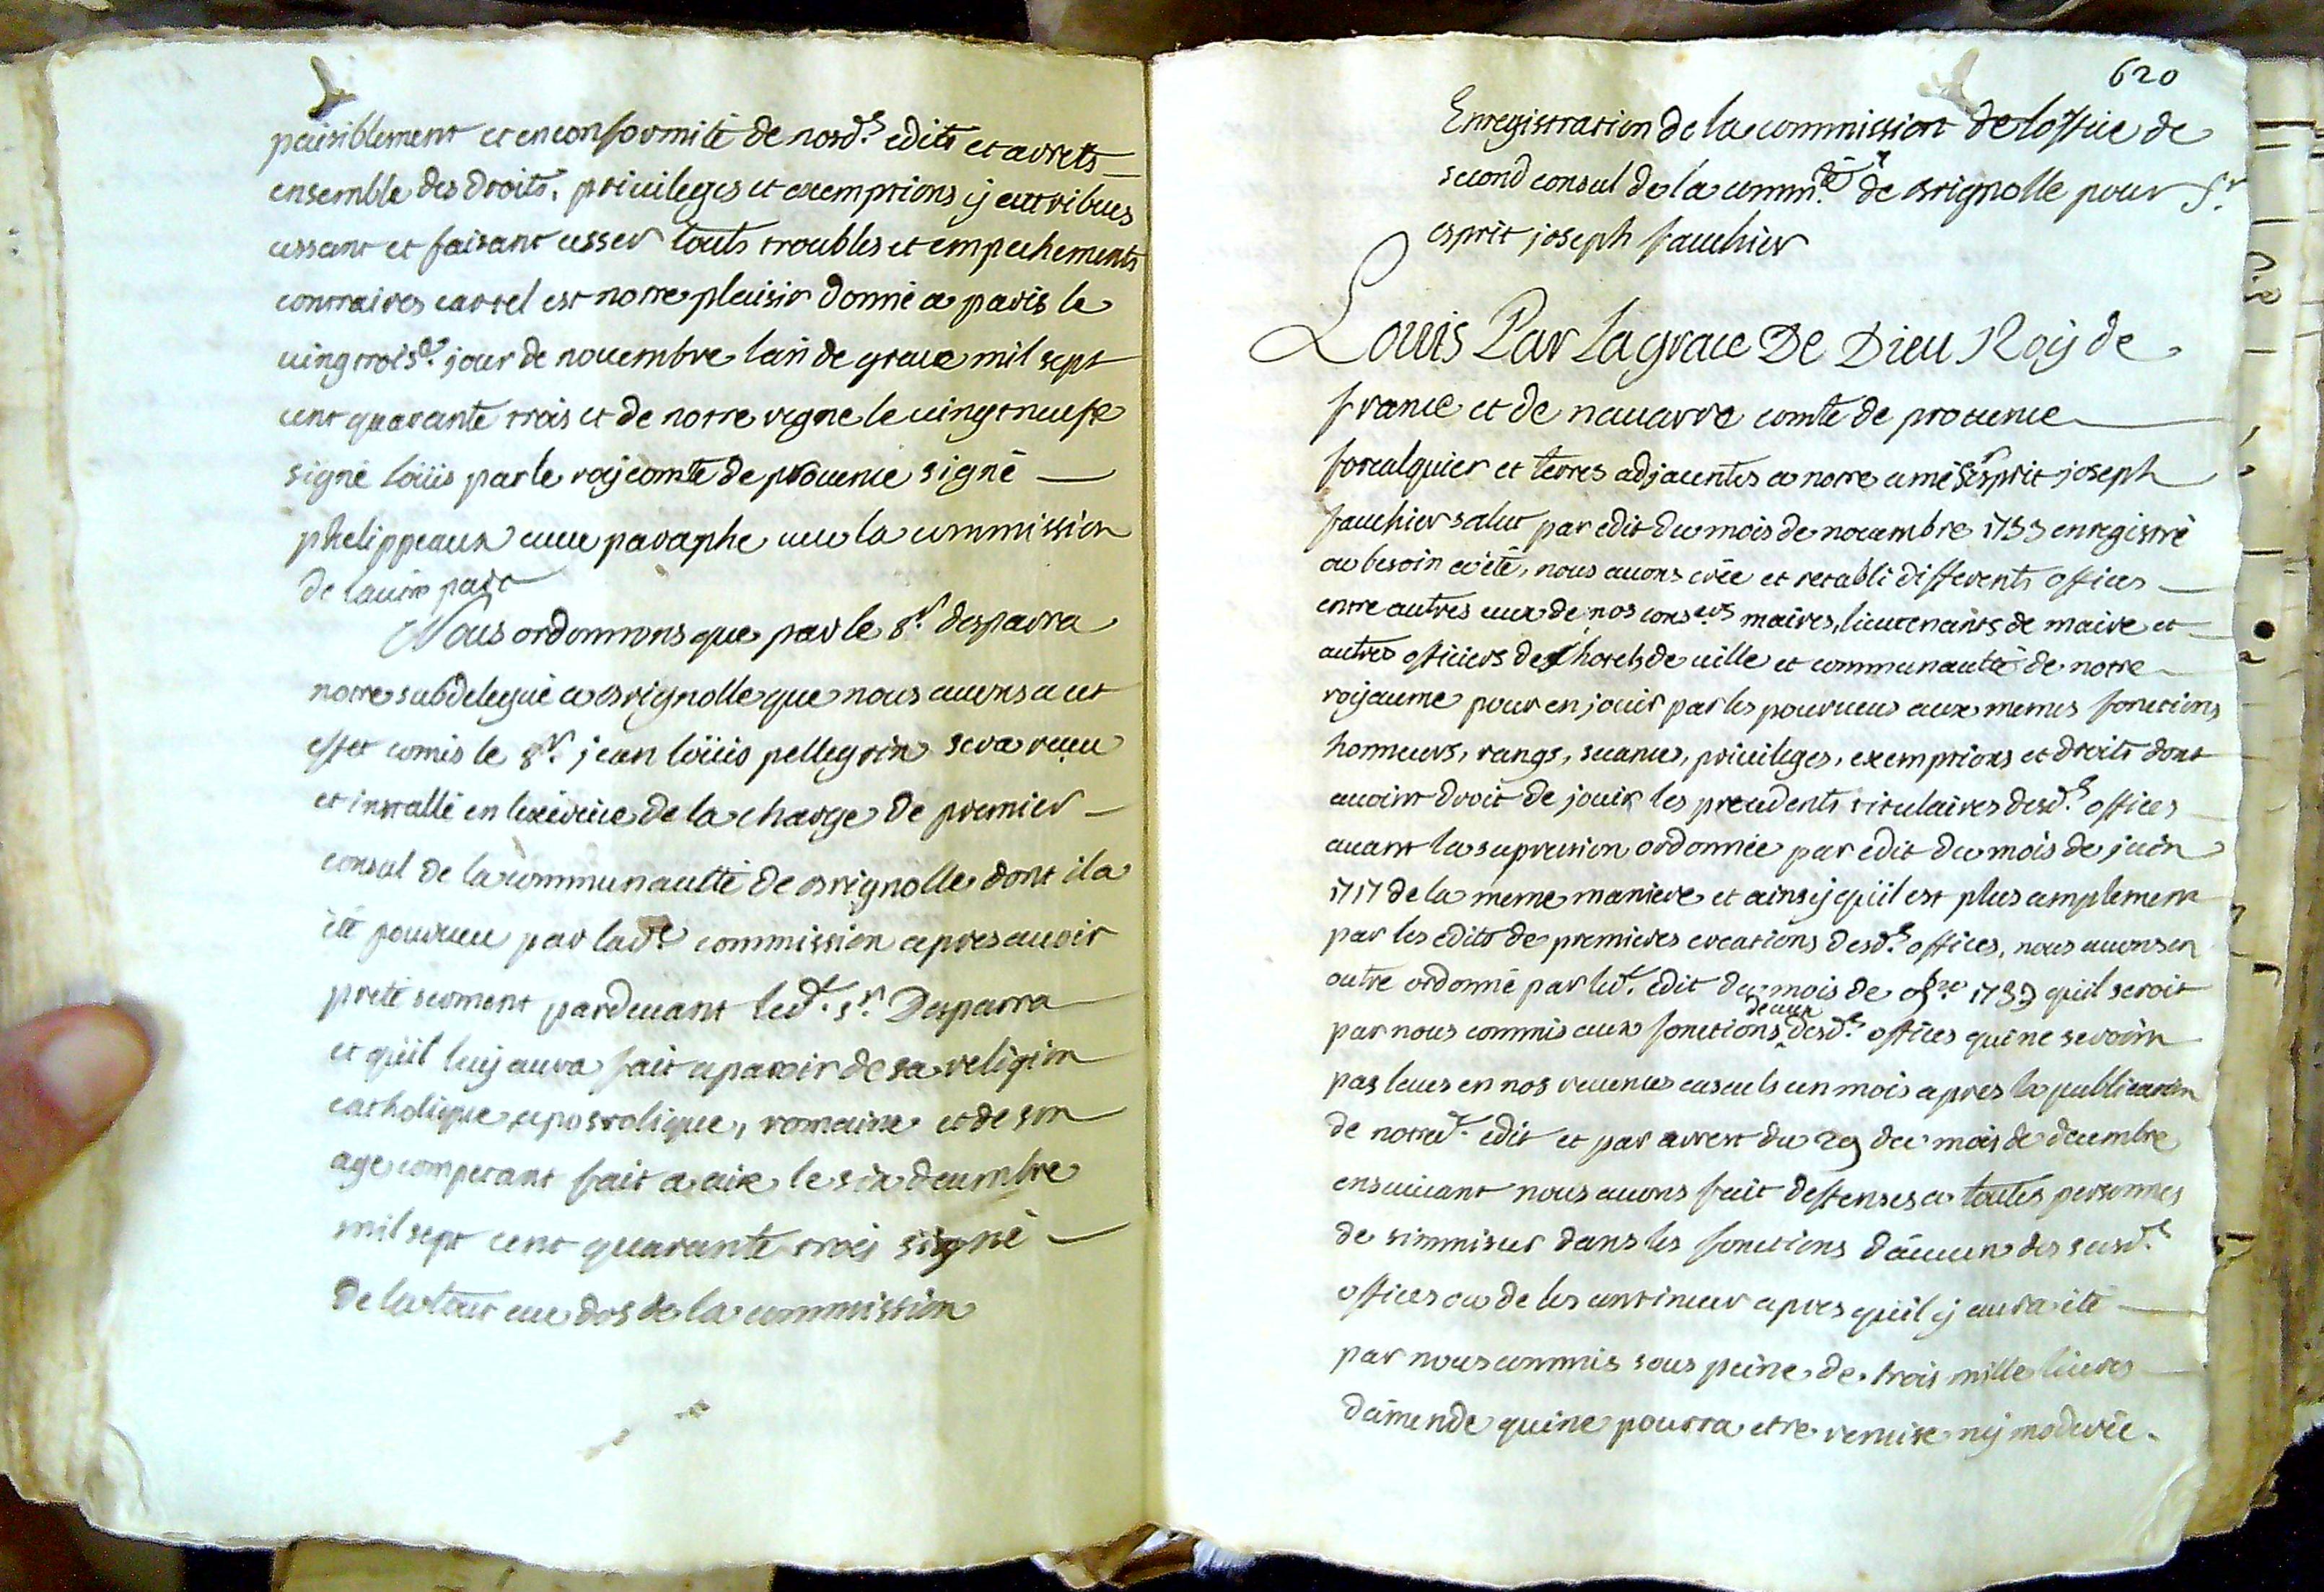 paisiblement et en conformité de nosd.s edits et arrets
ensemble des droits, privileges et exemptions ÿ attribues
cessant et faisant cesser touts troubles et empechements
contraires car tel est notre plaisir donné a paris le
vingt trois.e jour de novembre lan de grace mil sept
cent quarante trois et de notre regne le vingt neufe
signé loüis par le roy comte de provence signé
phelippeaux avec paraphe veu la commission
de lautre part
Nous ordonnons que par le s.r desparra
notre subdelegué a brignolle que nous avons a cet
effet comis le s.r jean loüis pellegrin sera receu
et installé en lexercice de la charge de premier
consul de la communauté de brignolle dont il a
été pourveu par lad.te commission apres avoir
preté serment pardevant led.t s.r Desparra
et qu'il luy aura fait aparoir de sa religion
catholique, apostolique, romaine et de son
age competant fait a aix le six decembre
mil sept cent quarante trois signé
de la tour au dos de la commission
620
Enregistration de la commission de loffice de
second consul de la comm.té de brignolle pour s.r
esprit joseph fauchier
Louis Par La grace De Dieu Roÿ de
france et de navarre comte de provence
forcalquier et terres adjacentes a notre amé s.r esprit joseph
fauchier salut par edit du mois de novembre 1733 enregistré
ou besoin a été, nous avons crée et retabli differents offices
entre autres ceux de nos cons.ers maires, lieutenants de maire et
autres officiers des hotels de ville et communauté de notre
roÿaume pour en jouir par les pourveus aux memes fonctions
honneurs, rangs, seances, privileges, exemptions et droits dont
avoint droit de jouir les precedents titulaires desd.s offices
avant la supression ordonnée par edit du mois de juin
1717 de la meme maniere et ainsÿ qu'il est plus amplement
par les edits de premieres creations desd.s offices, nous avons en
outre ordonné par led.t edit du mois de 9.bre 1733 qu'il seroit
par nous commis aux fonctions de ceux desd.s offices qui ne seroint
pas levés en nos revenus casuels un mois apres la publication
de notred.t edit et par arrest du 29 du mois de decembre
ensuivant nous avons fait deffenses a toutes personnes
de simmiscer dans les fonctions d'aucun des susd.s
offices ou de les continuer apres qu'il ÿ aura été
par nous commis sous peine de trois mille livres
d'amende qui ne pourra etre remise nÿ moderée.